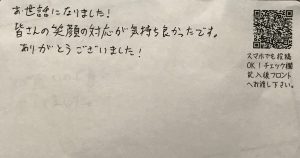 お世話になりました！
皆さんの笑顔の対応が気持ち良かったです。
ありがとうございました！
スマホでも投稿
OK！チェック欄
記入後フロント
へお渡し下さい。